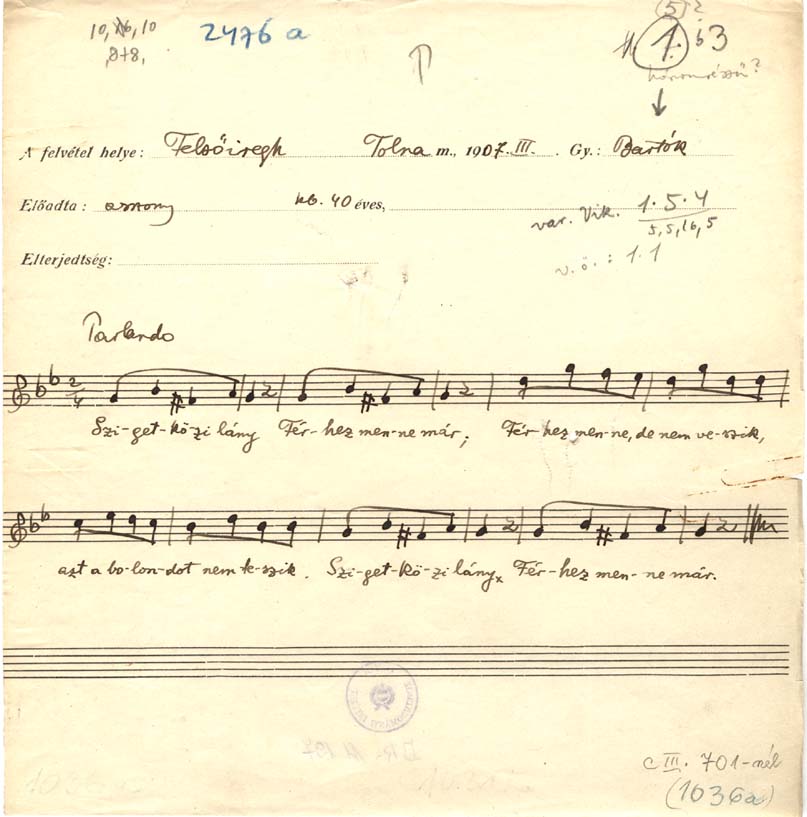 10, 16, 10
8+8,
2476 a
(5)?
1. 63
háromrészű?
A felvétel helye: Felsőiregh Tolna m., 1907. III. Gy.: Bartók
Előadta: asszony kb. 40 éves,
var. Vik. 1.5.4
5,5,16,5
Elterjedtség:
v. ö. : 1.1
Parlando
2/4
Szi-get-kö-zi lány Fér-hez men-ne már; Fér-hez men-ne, de nem ve-szik,
azt a bo-lon-dot nem te-szik. Szi-get-kö-zi lány, Fér-hez men-ne már.
C III. 701-nél
(1036a)